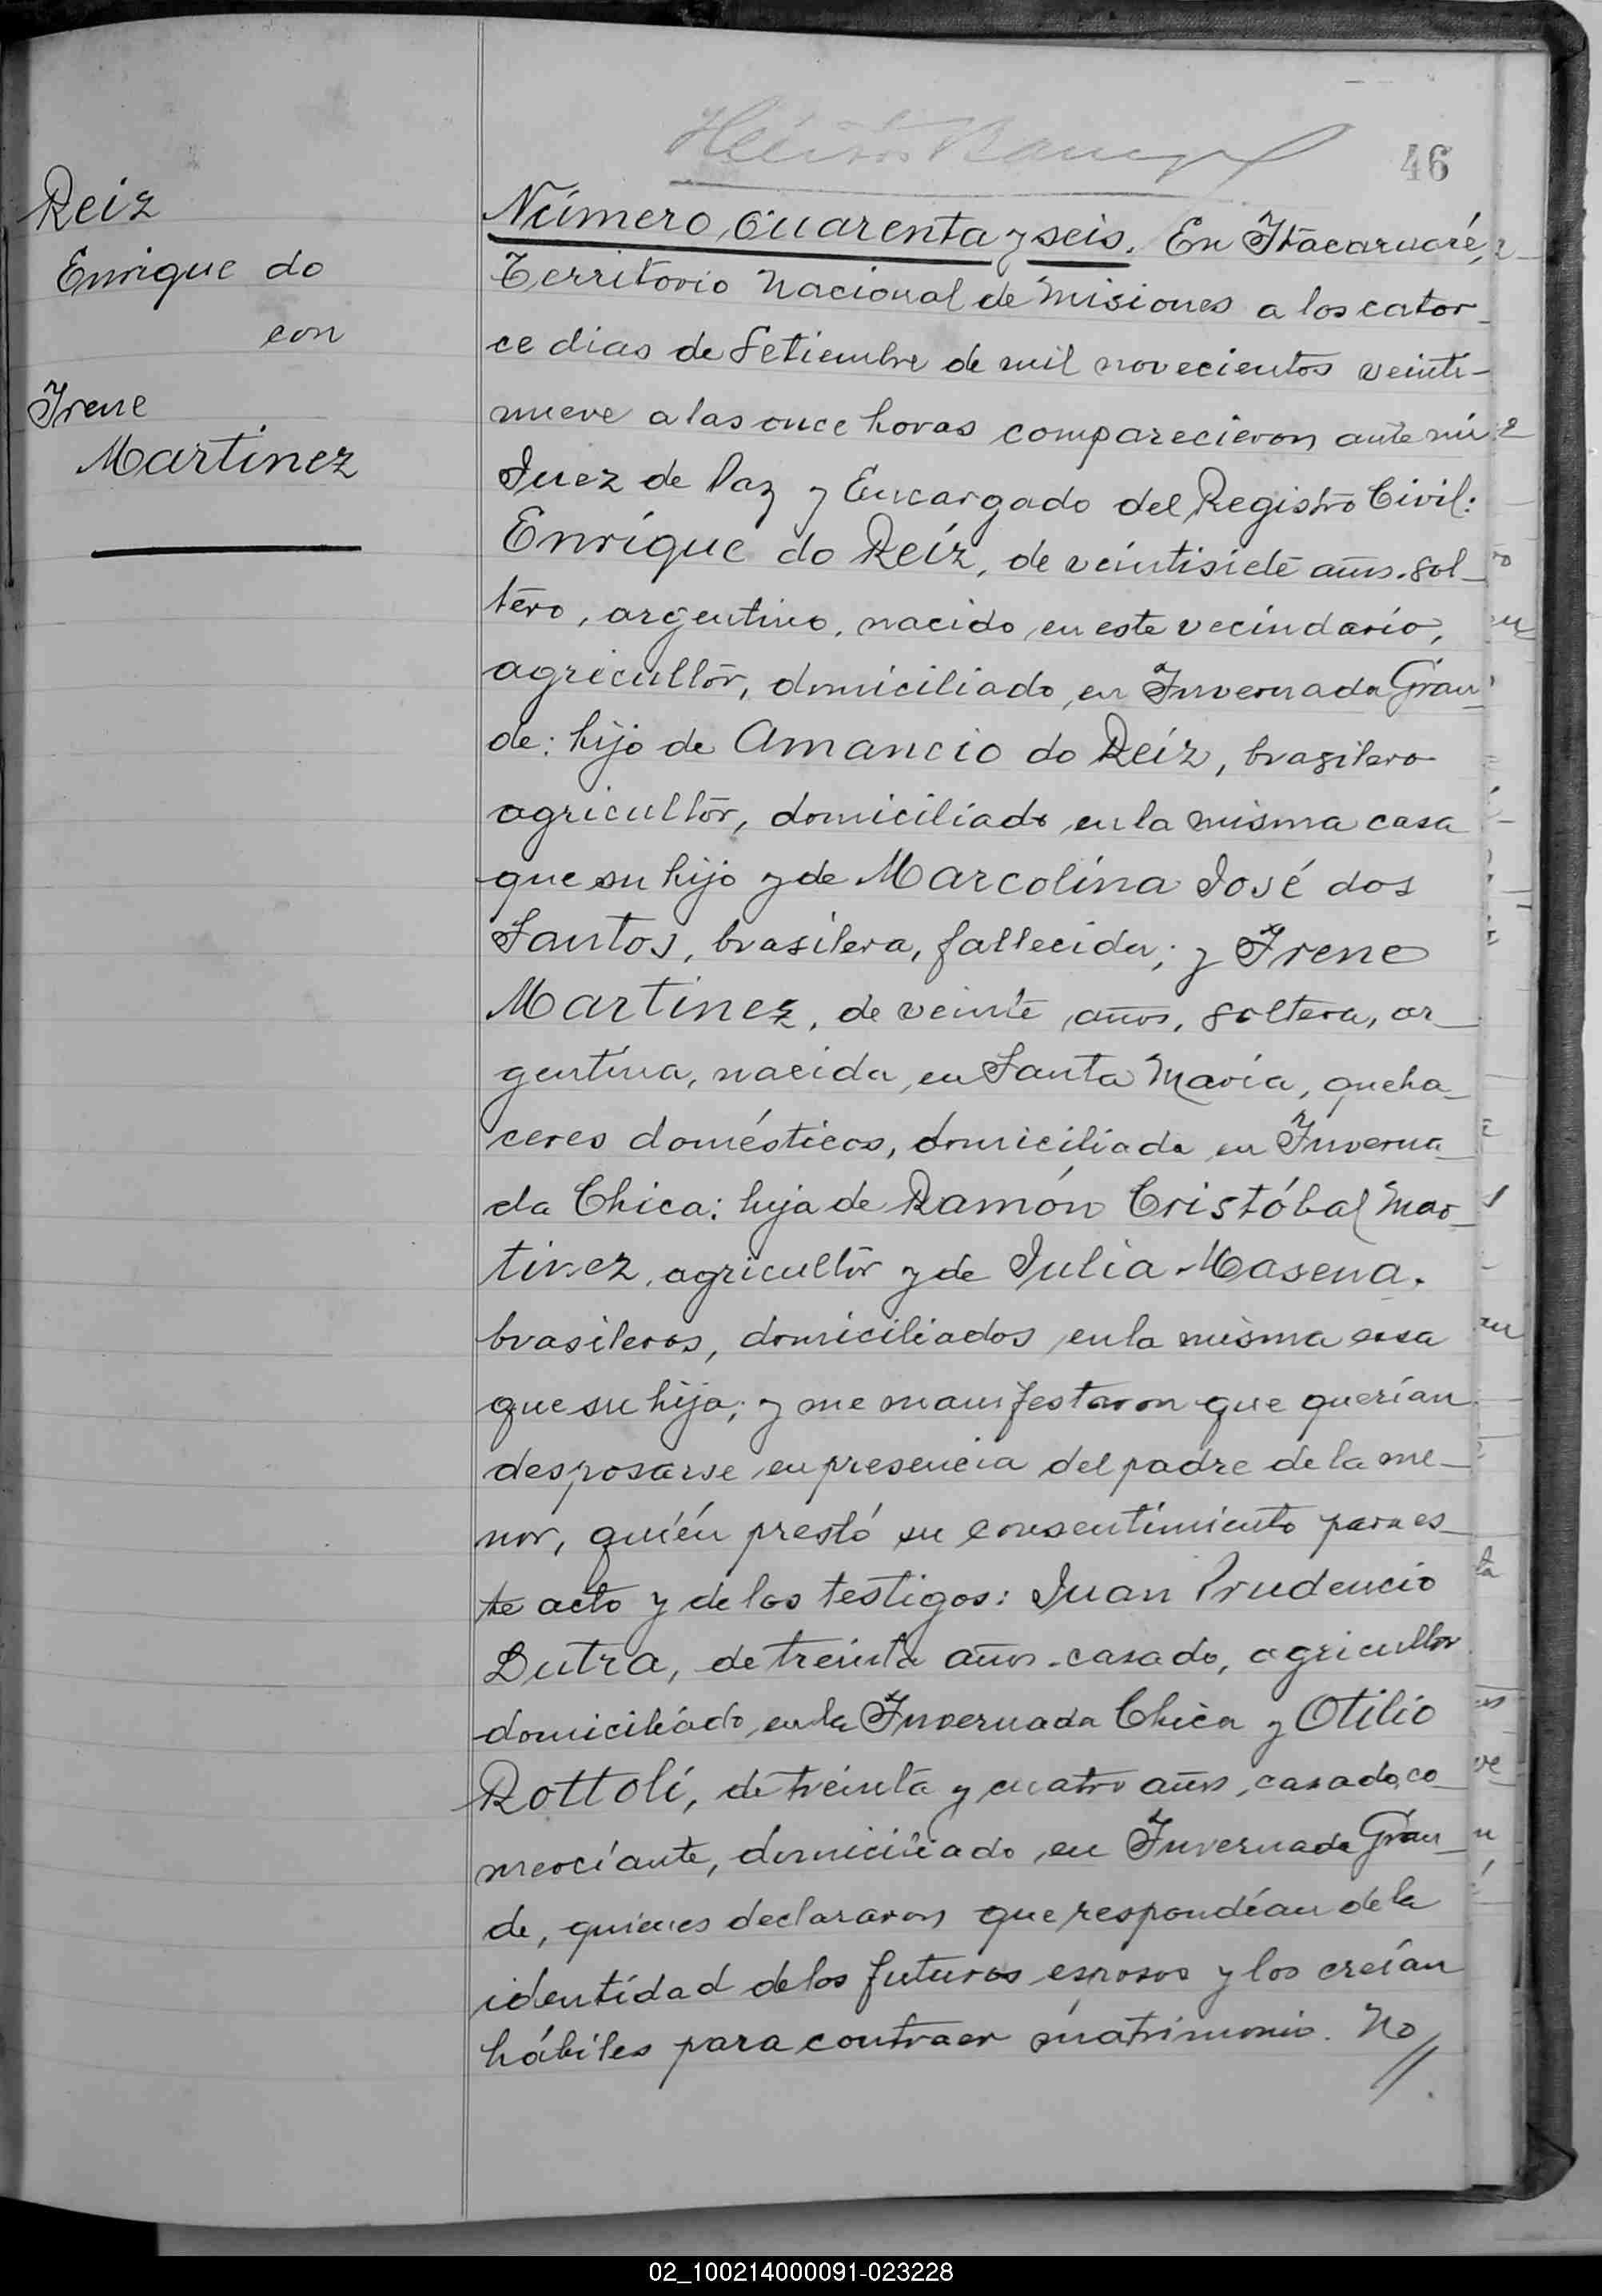 46
Reiz
Enrique do
con
Irene
Martinez
Número Cuarenta y seis. En Itacaruaré,
Territorio Nacional de Misiones a los cator-
ce dias de Setiembre de mil novecientos veinti-
nueve a las once horas comparecieron ante mi
Juez de Paz y Encargado del Registro Civil:
Enrique do Reiz, de veintisiete años, sol-
tero, argentino, nacido en este vecindario,
agricultor, domiciliado en Invernada Gran-
de: hijo de Amancio do Reiz, brasilero
agricultor, domiciliado en la misma casa
que su hijo y de Marcolina José dos
Santos, brasilera, fallecida; y Irene
Martinez, de veinte años, soltera, ar-
gentina, nacida en Santa Maria, queha-
ceres domésticos, domiciliada en Inverna-
da Chica: hija de Ramón Cristóbal Mar-
tinez, agricultor y de Julia Masena,
brasileros, domiciliados en la misma casa
que su hija; y me manifestaron que querían
desposarse en presencia del padre de la me-
nor, quién prestó su consentimiento para es-
te acto y de los testigos: Juan Prudencio
Dutra, de treinta años, casado, agricultor
domiciliado en la Invernada Chica y Otilio
Rottoli, de treinta y cuatro años, casado, co-
merciante, domiciliado en Invernada Gran-
de, quienes declararon que respondían de la
identidad de los futuros esposos y los creían
hábiles para contraer matrimonio. No//.
02_100214000091-023228